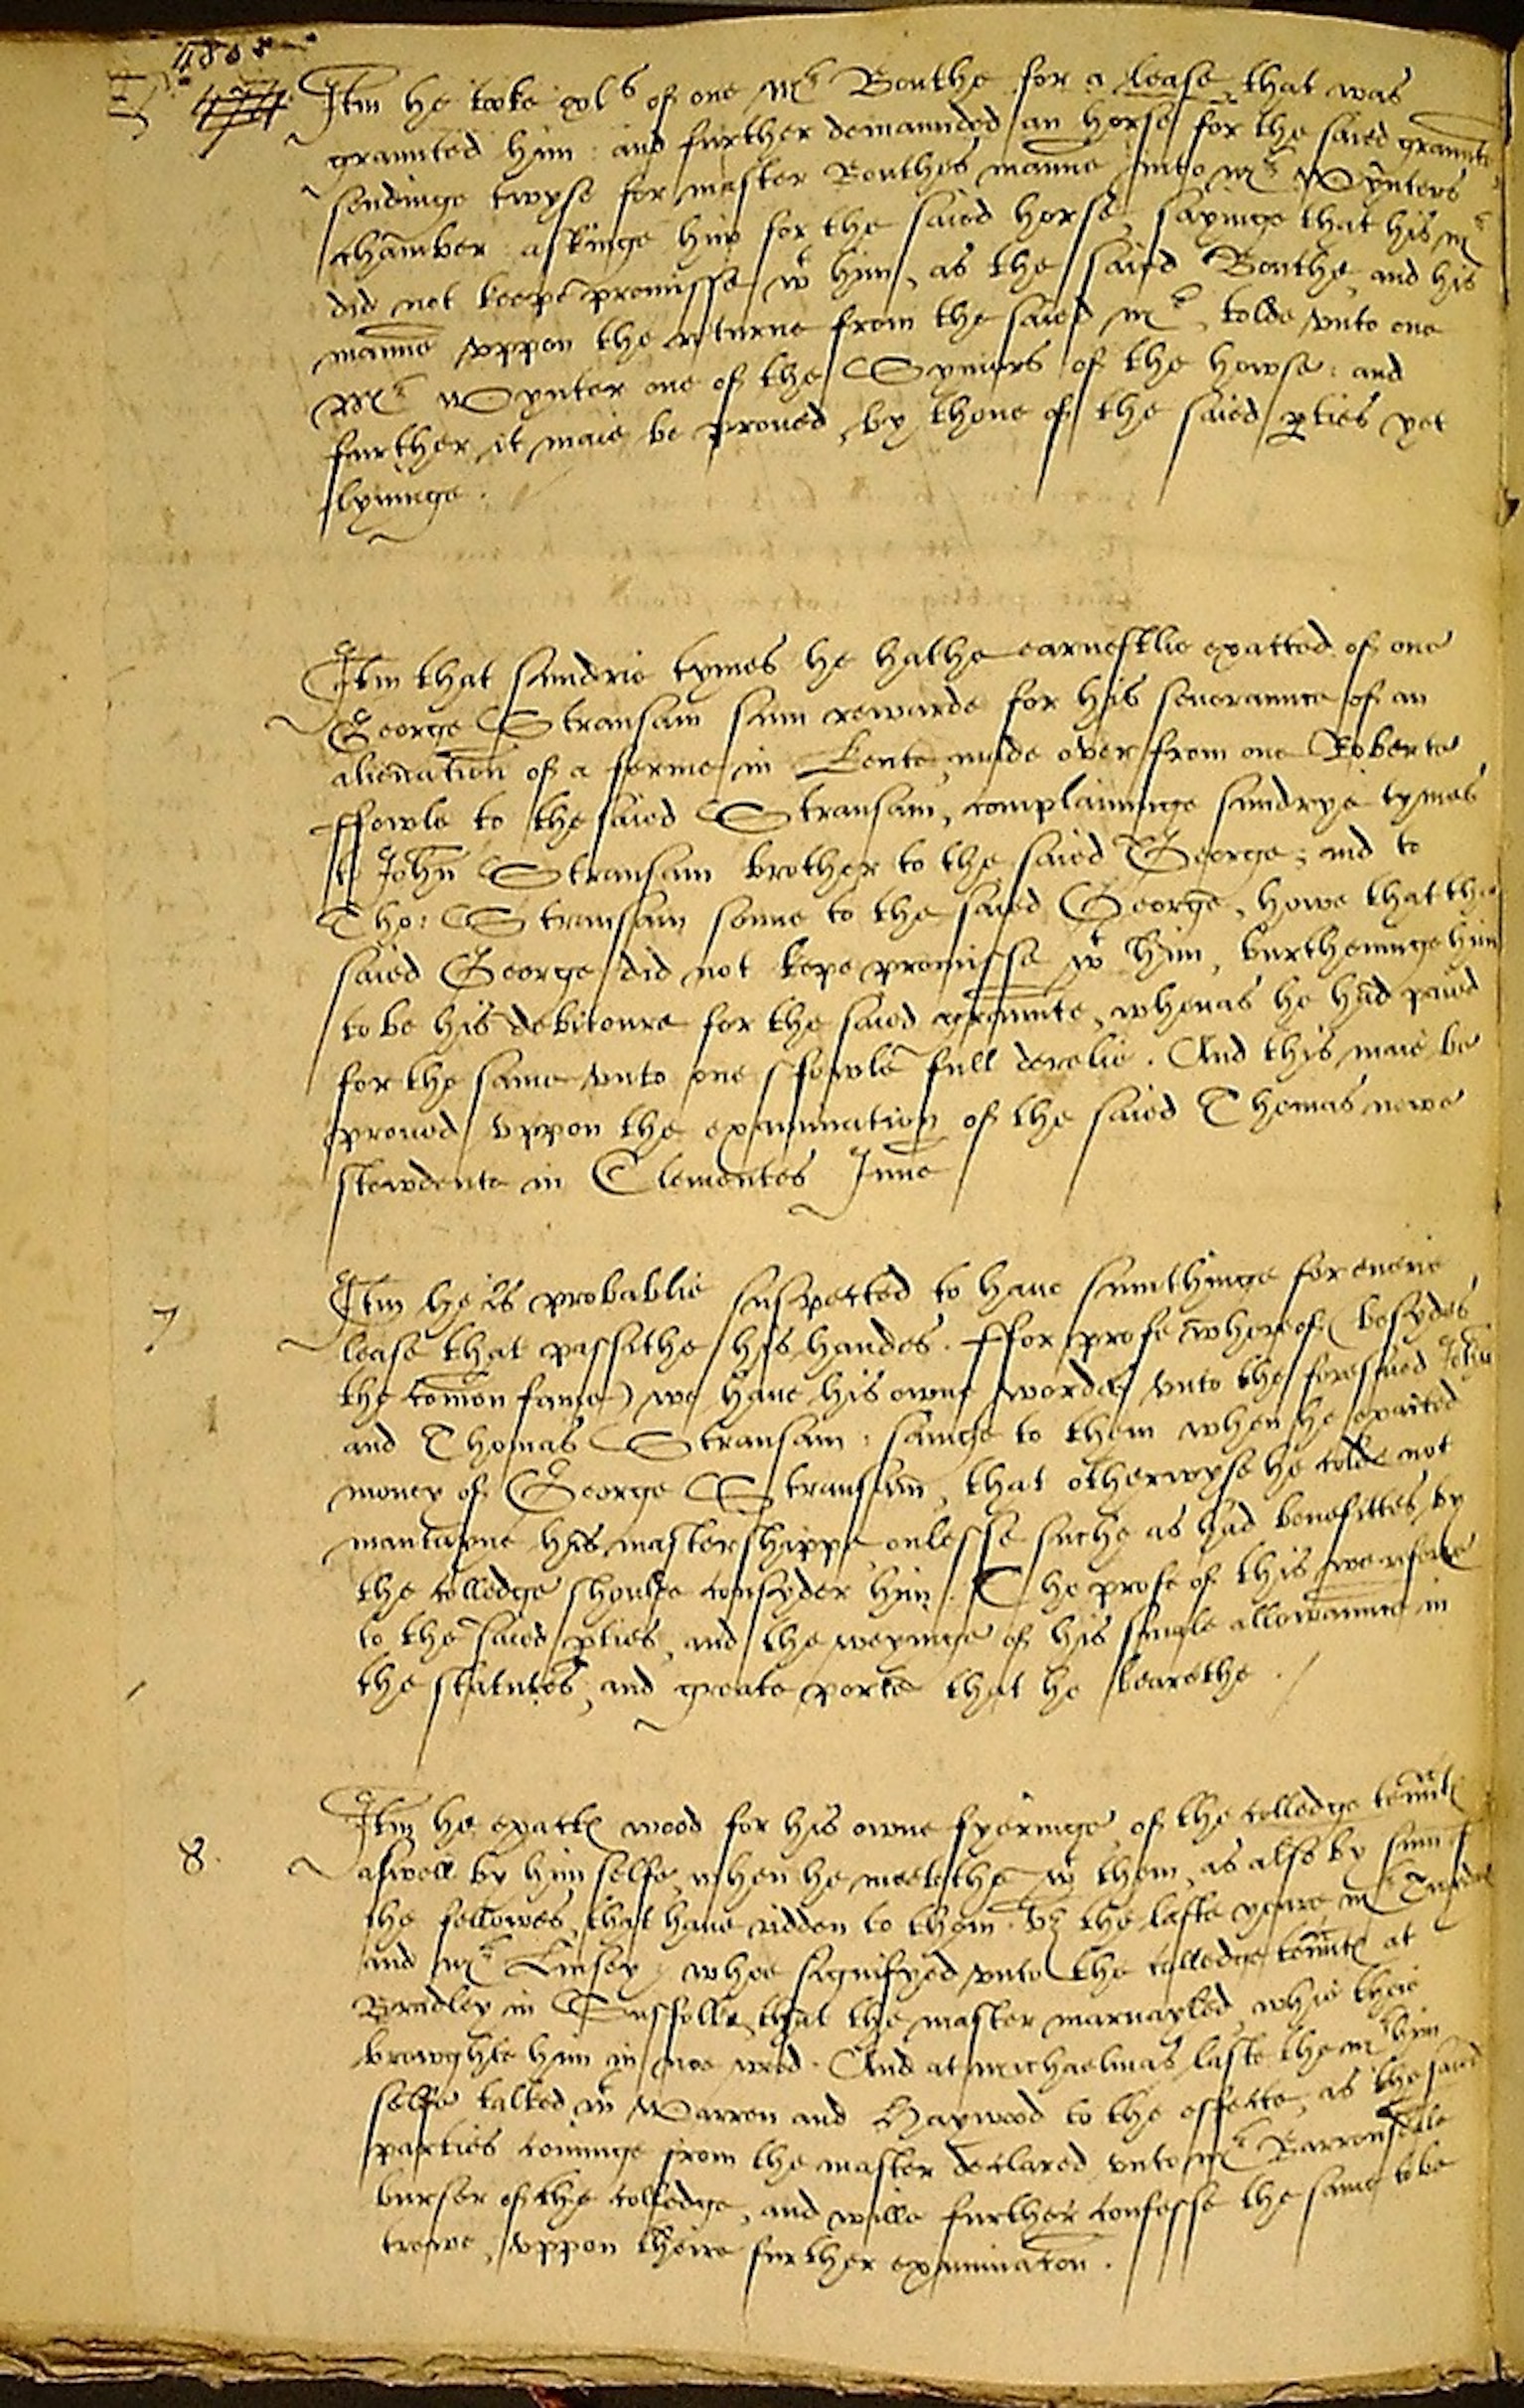 Itm he tooke xls of one Mr Bouthe for a lease that was
graunted him : and further demaunded an horse for the saied graunte
sendinge twyse for master Bouthes manne into Mr Wynters
chamber : askinge him for the saied horse, sayinge that his mr
did not keepe promisse wt him, as the saied Bouthe and his
manne vppon the returne from the saied mr, tolde vnto one
Mr Wynter one of the Syniors of the howse : and
further it maie be proued, by thone of the saied pties yet
lyuinge.
Itm that sundrie tymes he hathe earnestlie exacted of one
George Stransam sum rewarde for his seuerannce of an
alienation of a ferme in Kente made over from one Roberte
ffowle to the saied Stransam, complaininge sundrye tymes
to John Stransam brother to the saied George ; and to
Tho: Stransam sonne to the saied George, howe that the
saied George did not kepe promisse wt him, burtheninge him
to be his debitoure for the saied graunte, whenas he had paied
for the same vnto one ffowle full derelie. And this maie be
proued vppon the examination of the saied Thomas nowe
stewdente in Clementes Inne
7
Itm he is probablie suspected to haue sumthinge for euerie
lease that passithe his handes. ffor profe whereof (besydes
the comon fame) we haue his owne wordes vnto the foresaied John
and Thomas Stransam : sainge to them when he exacted
money of George Stransam, that otherwyse he colde not
mantayne his mastershippe onlesse suche as had benefittes by
the colledge shoulde consyder him. The profe of this we referre
to the saied pties, and the weyinge of his simple allowannce in
the statutes, and greate porte that he bearethe.
8.
Itm he exactes wood for his owne fyeringe of the colledge tennts
aswell by him selfe, when he meetethe wt them, as also by sum of
the fellowes, that haue ridden to them. vz the laste yeare mr
and mr Linsey ; whoe signifyed vnto the colledge tennts at
Bradley in Suffolke, that the master marueyled, whie theie
browghte him in noe wood. And at michaelmas laste the mr him
selfe talked wt Warren and Haywood to the effecte, as the saied
parties cominge from the master declared vnto mr Barronsdale
burser of the colledge, and wille further confesse the same to be
trewe, vppon theire further examination.